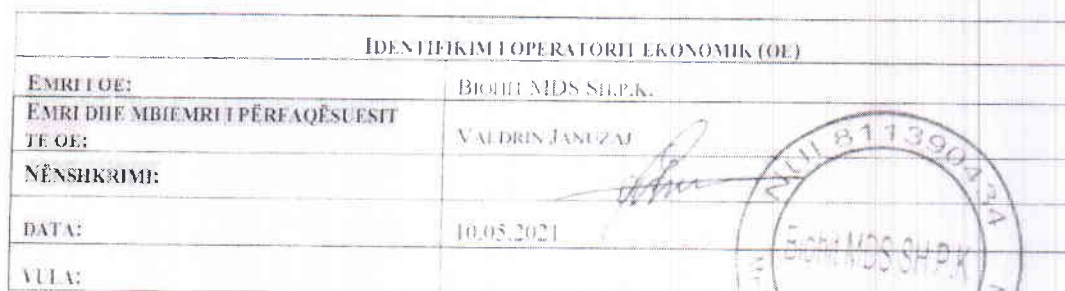 IDENTIFIKIMI I OPERATORIT EKONOMIK (OE)
EMRI I OE: BIOHIT MDS SH.P.K.
EMRI DHE MBIEMRI I PËRFAQËSUESIT
TE OE: VALDRIN JANUZAJ
NËNSHKRIMI:
DATA: 10.05.2021
VULA:
NUI 811390434
Biohit MDS SH.P.K